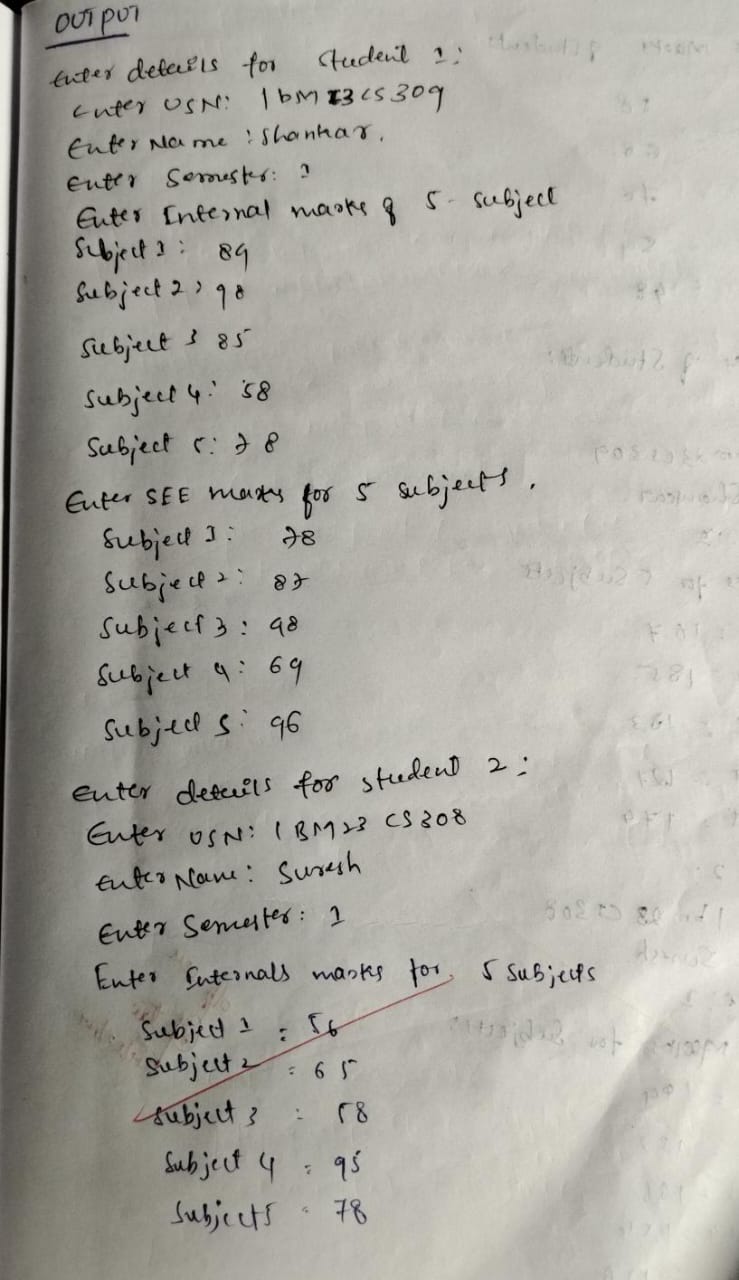 OUTPUT
Enter details for Student 1:
Enter USN: 1bM23CS309
Enter Name : Shankar.
Enter Semester: 1
Enter Internal marks of 5 subject
Subject 1 : 89
Subject 2 : 98
Subject 3 85
Subject 4: 58
Subject 5: 78
Enter SEE marks for 5 subjects.
Subject 1: 78
Subject 2: 87
Subject 3: 98
Subject 4: 69
Subject 5: 96
Enter details for student 2:
Enter USN: 1BM23 CS308
Enter Name: Suresh
Enter Semester: 1
Enter Internals marks for 5 Subjects
Subject 1 : 56
Subject 2 : 65
Subject 3 : 58
Subject 4 : 95
Subject 5 : 78